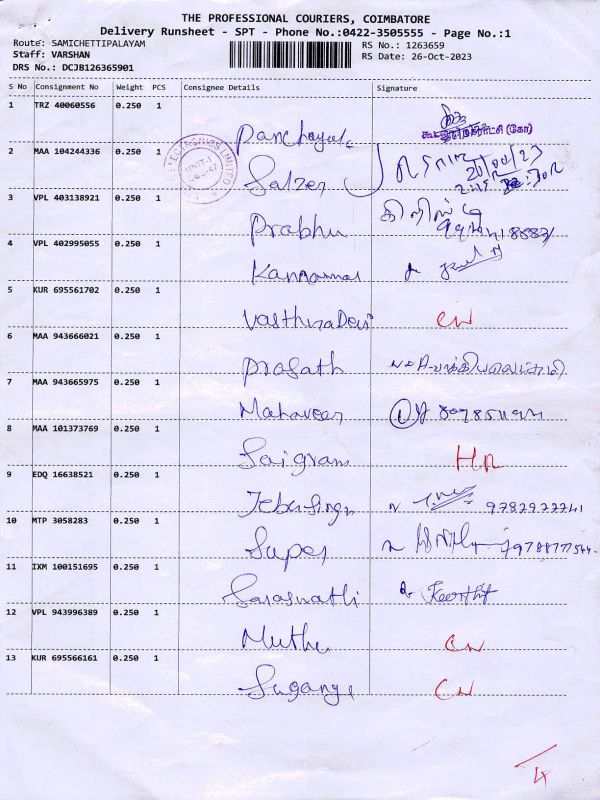 THE PROFESSIONAL COURIERS, COIMBATORE
Delivery Runsheet - SPT - Phone No.:0422-3505555 - Page No.:1
Route: SAMICHETTIPALAYAM
RS No.: 1263659
Staff: VARSHAN
RS Date: 26-Oct-2023
DRS No.: DCJB126365901
S No Consignment No Weight PCS Consignee Details Signature
1 TRZ 40060556 0.250 1 Panchayat
2 MAA 104244336 0.250 1 Salzer
UNIT-1
3 VPL 403138921 0.250 1 Prabhu
4 VPL 402995055 0.250 1 Kannammal
5 KUR 695561702 0.250 1 Vasthira Devi CN
6 MAA 943666021 0.250 1 Prasath
7 MAA 943665975 0.250 1 Mahaveer
8 MAA 101373769 0.250 1 Saigram HR
9 EDQ 16638521 0.250 1 Jebasingh
10 MTP 3058283 0.250 1 Super
11 IXM 100151695 0.250 1 Saraswathi Keerthi
12 VPL 943996389 0.250 1 Muthu CN
13 KUR 695566161 0.250 1 CN
4